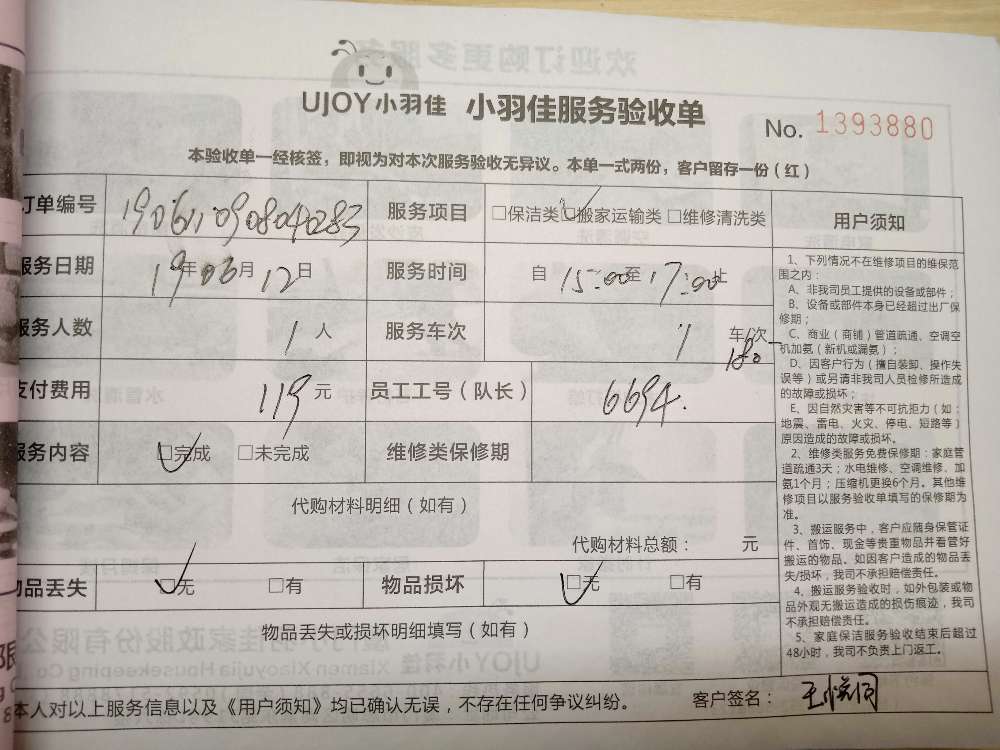 UJOY小羽佳 小羽佳服务验收单 No. 1393880
本验收单一经核签，即视为对本次服务验收无异议。本单一式两份，客户留存一份（红）
订单编号 1906110908040283 服务项目 □保洁类 □搬家运输类 □维修清洗类
服务日期 19年06月12日 服务时间 自 15:00至17:00止
服务人数 1人 服务车次 1 车/次
支付费用 119元 员工工号（队长） 6694.
服务内容 □完成 □未完成 维修类保修期
代购材料明细（如有）
代购材料总额： 元
物品丢失 □无 □有 物品损坏 □无 □有
物品丢失或损坏明细填写（如有）
用户须知
1、下列情况不在维修项目的维保范
围之内：
A、非我司员工提供的设备或部件；
B、设备或部件本身已经超过出厂保
修期；
C、商业（商铺）管道疏通、空调空
机加氨（新机或漏氨）；
D、因客户行为（擅自装卸、操作失
误等）或另请非我司人员检修所造成
的故障或损坏；
E、因自然灾害等不可抗拒力（如：
地震、雷电、火灾、停电、短路等）
原因造成的故障或损坏。
2、维修类服务免费保修期：家庭管
道疏通3天；水电维修、空调维修、加
氨1个月；压缩机更换6个月。其他维
修项目以服务验收单填写的保修期为
准。
3、搬运服务中，客户应随身保管证
件、首饰、现金等贵重物品并看管好
搬运的物品。如因客户造成的物品丢
失/损坏，我司不承担赔偿责任。
4、搬运服务验收时，如外包装或物
品外观无搬运造成的损伤痕迹，我司
不承担赔偿责任。
5、家庭保洁服务验收结束后超过
48小时，我司不负责上门返工。
本人对以上服务信息以及《用户须知》均已确认无误，不存在任何争议纠纷。 客户签名：